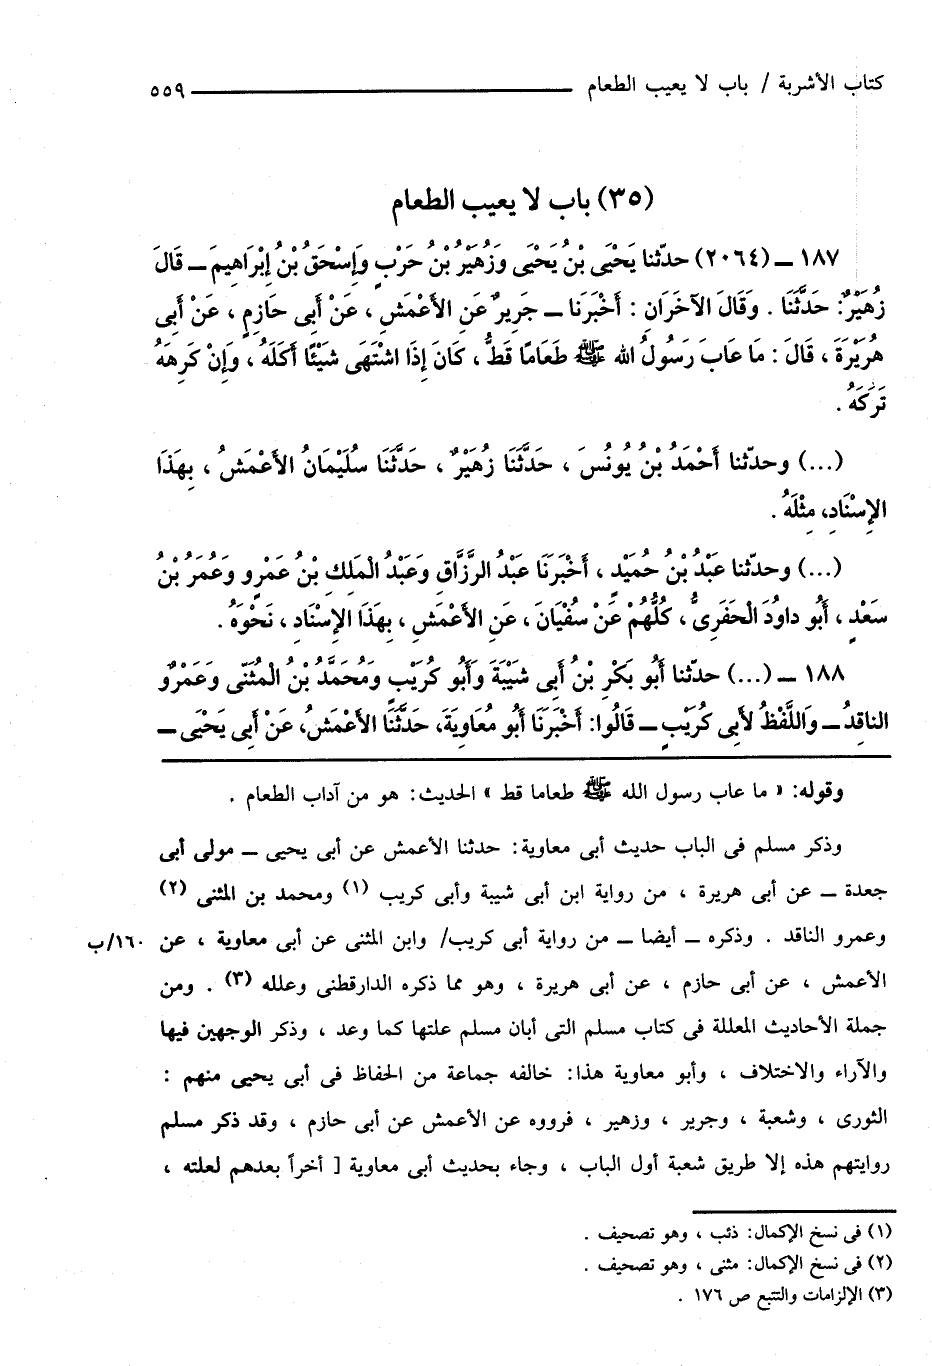 كتاب الأشربة / باب لا يعيب الطعام ٥٥٩
(٣٥) باب لا يعيب الطعام
١٨٧ ـ (٢٠٦٤) حدّثنا يَحْيَى بْنُ يَحْيَى وَزُهَيْرُ بْنُ حَرْبٍ وَإِسْحَقُ بْنُ إِبْرَاهِيمَ ـ قَالَ
زُهَيْرٌ: حَدَّثَنَا . وَقَالَ الآخَرَانِ : أَخْبَرَنَا ـ جَرِيرٌ عَنِ الأَعْمَشِ ، عَنْ أَبِى حَازِمٍ ، عَنْ أَبِى
هُرَيْرَةَ ، قَالَ : مَا عَابَ رَسُولُ الله ﷺ طَعَامًا قَطُّ ، كَانَ إِذَا اشْتَهَى شَيْئًا أَكَلَهُ ، وَإِنْ كَرِهَهُ
تَرَكَهُ .
(...) وحدّثنا أَحْمَدُ بْنُ يُونُسَ ، حَدَّثَنَا زُهَيْرٌ ، حَدَّثَنَا سُلَيْمَانُ الأَعْمَشُ ، بِهَذَا
الإِسْنَادِ، مِثْلَهُ .
(...) وحدّثنا عَبْدُ بْنُ حُمَيْدٍ ، أَخْبَرَنَا عَبْدُ الرَّزَّاقِ وَعَبْدُ الْمَلِكِ بْنُ عَمْرٍو وَعُمَرُ بْنُ
سَعْدٍ ، أَبُو دَاودَ الْحَفَرِىُّ ، كُلُّهُمْ عَنْ سُفْيَانَ ، عَنِ الأَعْمَشِ ، بِهَذَا الإِسْنَادِ ، نَحْوَهُ .
١٨٨ ـ (...) حدّثنا أَبُو بَكْرِ بْنُ أَبِى شَيْبَةَ وَأَبُو كُرَيْبٍ وَمُحَمَّدُ بْنُ الْمُثَنَّى وَعَمْرٌو
الناقِدُ ـ وَاللَّفْظُ لأَبِى كُرَيْبٍ ـ قَالُوا: أَخْبَرَنَا أَبُو مُعَاوِيَةَ، حَدَّثَنَا الأَعْمَشُ، عَنْ أَبِى يَحْيَى ـ
وقوله: « ما عاب رسول الله ﷺ طعاما قط » الحديث: هو من آداب الطعام .
وذكر مسلم فى الباب حديث أبى معاوية: حدثنا الأعمش عن أبى يحيى ـ مولى أبى
جعدة ـ عن أبى هريرة ، من رواية ابن أبى شيبة وأبى كريب (١) ومحمد بن المثنى (٢)
وعمرو الناقد . وذكره ـ أيضا ـ من رواية أبى كريب/ وابن المثنى عن أبى معاوية ، عن ١٦٠/ب
الأعمش ، عن أبى حازم ، عن أبى هريرة ، وهو مما ذكره الدارقطنى وعلله (٣) . ومن
جملة الأحاديث المعللة فى كتاب مسلم التى أبان مسلم علتها كما وعد ، وذكر الوجهين فيها
والآراء والاختلاف ، وأبو معاوية هذا: خالفه جماعة من الحفاظ فى أبى يحيى منهم :
الثورى ، وشعبة ، وجرير ، وزهير ، فرووه عن الأعمش عن أبى حازم ، وقد ذكر مسلم
روايتهم هذه إلا طريق شعبة أول الباب ، وجاء بحديث أبى معاوية [ أخراً بعدهم لعلته ،
(١) فى نسخ الإكمال: ذئب ، وهو تصحيف .
(٢) فى نسخ الإكمال: مثنى ، وهو تصحيف .
(٣) الإلزامات والتتبع ص ١٧٦ .